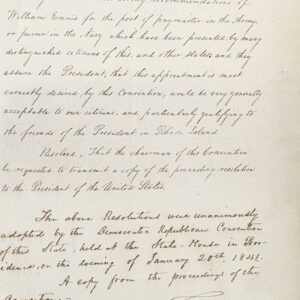 recommendations of
William Ennis for the post of paymaster in the Army,
or purser in the Navy which have been presented by many
distinguished citizens of this, and other States; and they
assure the President, that this appointment is most
earnestly desired, by this Convention, would be very generally
acceptable to our citizens, and particularly gratifying to
the friends of the President, in Rhode Island
Resolved, That the chairman of this Convention
be requested to transmit a copy of the preceding resolution
to the President of the United States.
The above Resolutions were unanimously
adopted by the Democratic Republican Convention
of this State, held at the State-House in Pro-
vidence, on the evening of January 20th, 1841.
A copy from the proceedings of the